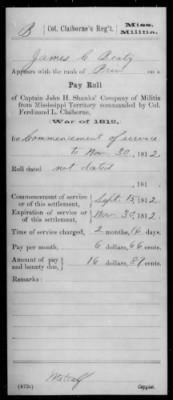 B | Col. Claiborne's Reg't. | Miss. Militia.
James C Beaty
Appears with the rank of Priv on a
Pay Roll
of Captain John H. Shanks' Company of Militia
from Mississippi Territory commanded by Col.
Ferdinand L. Claiborne,
War of 1812,
for Commencement of service
to Nov 30, 1812
Roll dated not dated
, 181 .
Commencement of service or of this settlement, } Sept. 15, 1812
Expiration of service or of this settlement, } Nov. 30, 1812.
Time of service charged, 2 months, 16 days.
Pay per month, 6 dollars, 66 cents.
Amount of pay and bounty due, } 16 dollars, 87 cents.
Remarks:
Metcalf
Copyist.